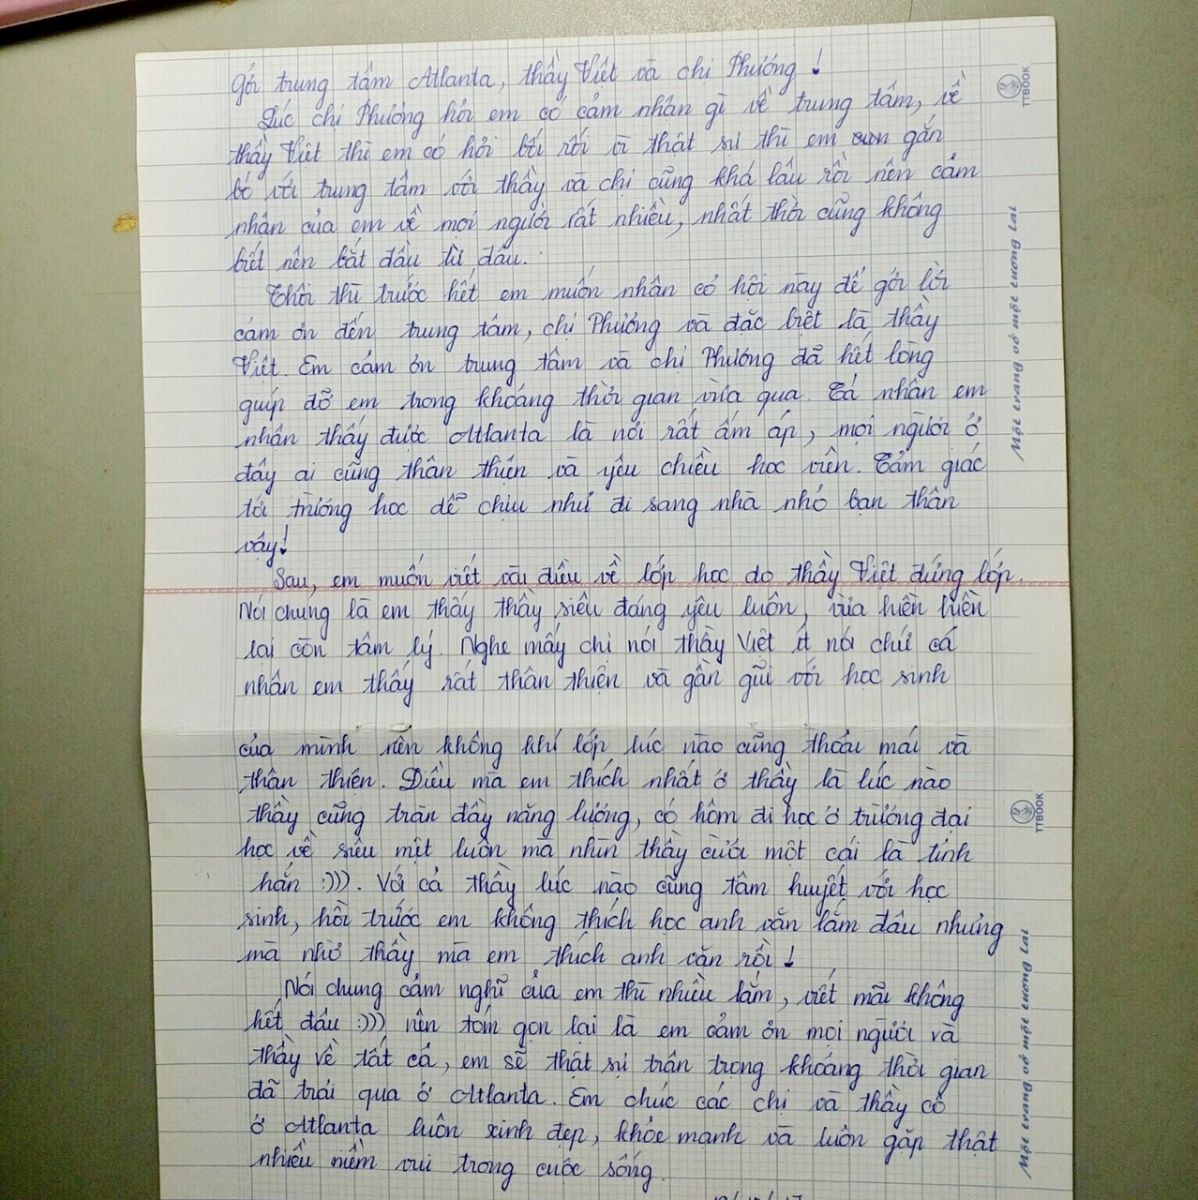 Gởi trung tâm Atlanta, thầy Việt và chị Phương!
Lúc chị Phương hỏi em có cảm nhận gì về trung tâm, về
thầy Việt thì em có hơi bối rối vì thật sự thì em gắn
bó với trung tâm với thầy và chị cũng khá lâu rồi nên cảm
nhận của em về mọi người rất nhiều, nhất thời cũng không
biết nên bắt đầu từ đâu.
Thôi thì trước hết em muốn nhân cơ hội này để gởi lời
cảm ơn đến trung tâm, chị Phương và đặc biệt là thầy
Việt. Em cảm ơn trung tâm và chị Phương đã hết lòng
giúp đỡ em trong khoảng thời gian vừa qua. Cá nhân em
nhận thấy được Atlanta là nơi rất ấm áp, mọi người ở
đây ai cũng thân thiện và yêu chiều học viên. Cảm giác
tới trường học dễ chịu như đi sang nhà nhỏ bạn thân
vậy!
Sau, em muốn viết vài điều về lớp học do thầy Việt đứng lớp.
Nói chung là em thấy thầy siêu đáng yêu luôn, vừa hiền hiền
lại còn tâm lý. Nghe mấy chị nói thầy Việt ít nói chứ cá
nhân em thấy rất thân thiện và gần gũi với học sinh
của mình nên không khí lớp lúc nào cũng thoải mái và
thân thiện. Điều mà em thích nhất ở thầy là lúc nào
thầy cũng tràn đầy năng lượng, có hôm đi học ở trường đại
học về siêu mệt luôn mà nhìn thầy cười một cái là tỉnh
hẳn :))). Với cả thầy lúc nào cũng tâm huyết với học
sinh, hồi trước em không thích học anh văn lắm đâu nhưng
mà nhờ thầy mà em thích anh văn rồi!
Nói chung cảm nghĩ của em thì nhiều lắm, viết mãi không
hết đâu :))) nên tóm gọn lại là em cảm ơn mọi người và
thầy về tất cả, em sẽ thật sự trân trọng khoảng thời gian
đã trải qua ở Atlanta. Em chúc các chị và thầy cô
ở Atlanta luôn xinh đẹp, khỏe mạnh và luôn gặp thật
nhiều niềm vui trong cuộc sống.
TTBOOK
Một trang vở một tương lai
TTBOOK
Một trang vở một tương lai